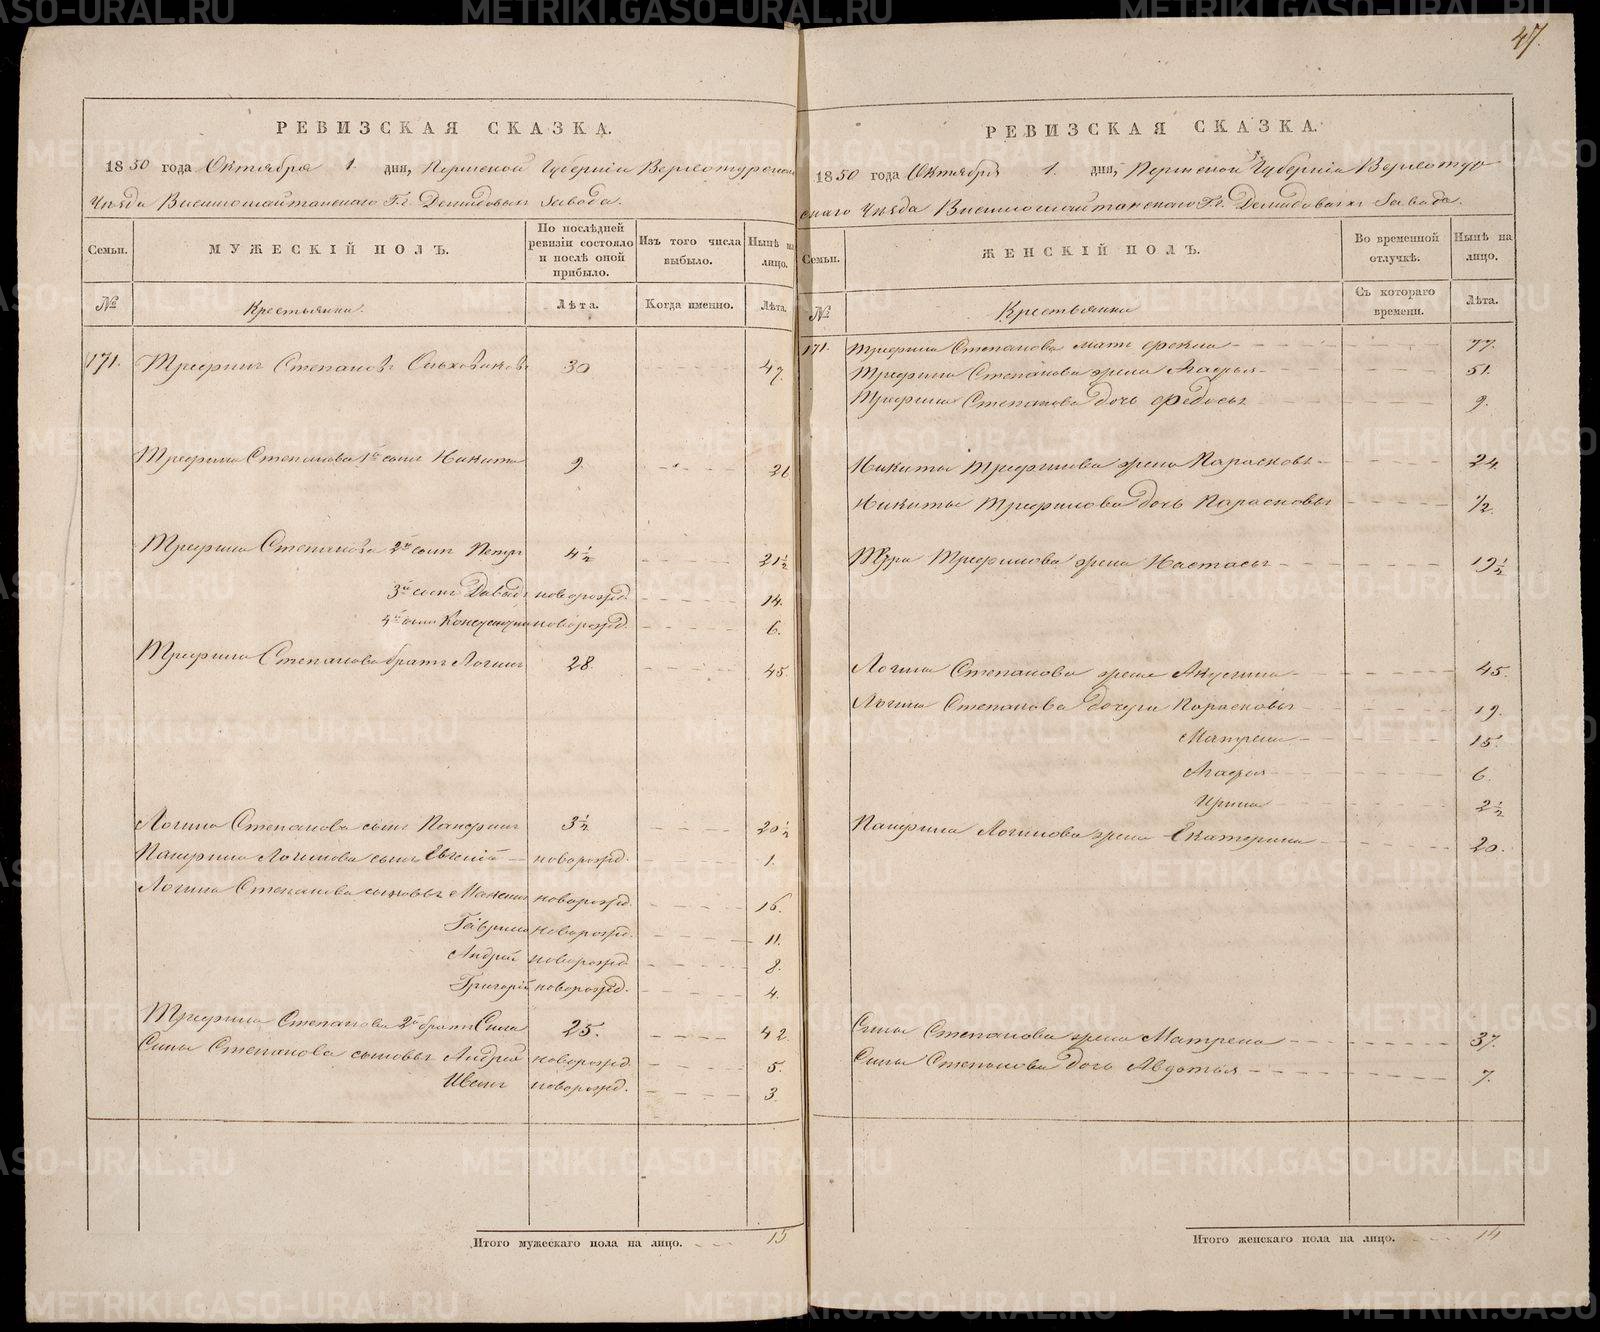 47.
РЕВИЗСКАЯ СКАЗКА.
1850 года Октября 1. дня, Пермской Губерніи Верхотурскаго
Уѣзда Висимошайтанскаго Гг. Демидовыхъ Завода.
Семьи.
МУЖЕСКІЙ ПОЛЪ.
По послѣдней ревизіи состояло и послѣ оной прибыло.
Изъ того числа выбыло.
Нынѣ на лицо.
№
Крестьяни.
Лѣта.
Когда именно.
Лѣта.
171. Трефилъ Степановъ 30 47.
Трефила Степанова 1й сынъ Никита 9. 26
Трефила Степанова 2й сынъ Петръ 4½ 21½
3й сынъ Давыдъ новорожд. 14.
4й сынъ новорожд. 6.
Трефила Степанова братъ Логинъ 28. 45.
Логина Степанова сынъ Панфилъ 3½ 20½
Панфила Логинова сынъ Евгеній новорожд. 1.
Логина Степанова сыновья Максимъ новорожд. 16.
Гаврило новорожд. 11.
Андрей новорожд. 8.
Григорій новорожд. 4.
Трефила Степанова 2й братъ Сила 25. 42
Силы Степанова сыновья Андрей новорожд. 5.
Иванъ новорожд. 3.
Итого мужескаго пола на лицо. 15
РЕВИЗСКАЯ СКАЗКА.
1850 года Октября 1. дня, Пермской Губерніи Верхотур-
скаго Уѣзда Висимошайтанскаго Гг. Демидовыхъ Завода.
Семьи.
ЖЕНСКІЙ ПОЛЪ.
Во временной отлучкѣ.
Нынѣ на лицо.
№
Крестьянки
Съ котораго времени.
Лѣта.
171. Трефила Степанова мать Фекла 77.
Трефила Степанова жена Агафья 51.
Трефила Степанова дочь Федосья 9.
Никиты Трефилова жена Парасковья 24.
Никиты Трефилова дочь Парасковья ½.
Петра Трефилова жена Настасья 19½
Логина Степанова жена Акулина 45.
Логина Степанова дочери Парасковья 19.
Матрена 15.
Агафья 6.
Ирина 2½
Панфила Логинова жена Екатерина 20.
Силы Степанова жена Матрена 37.
Силы Степанова дочь Авдотья 7.
Итого женскаго пола на лицо. 14
METRIKI.GASO-URAL.RU